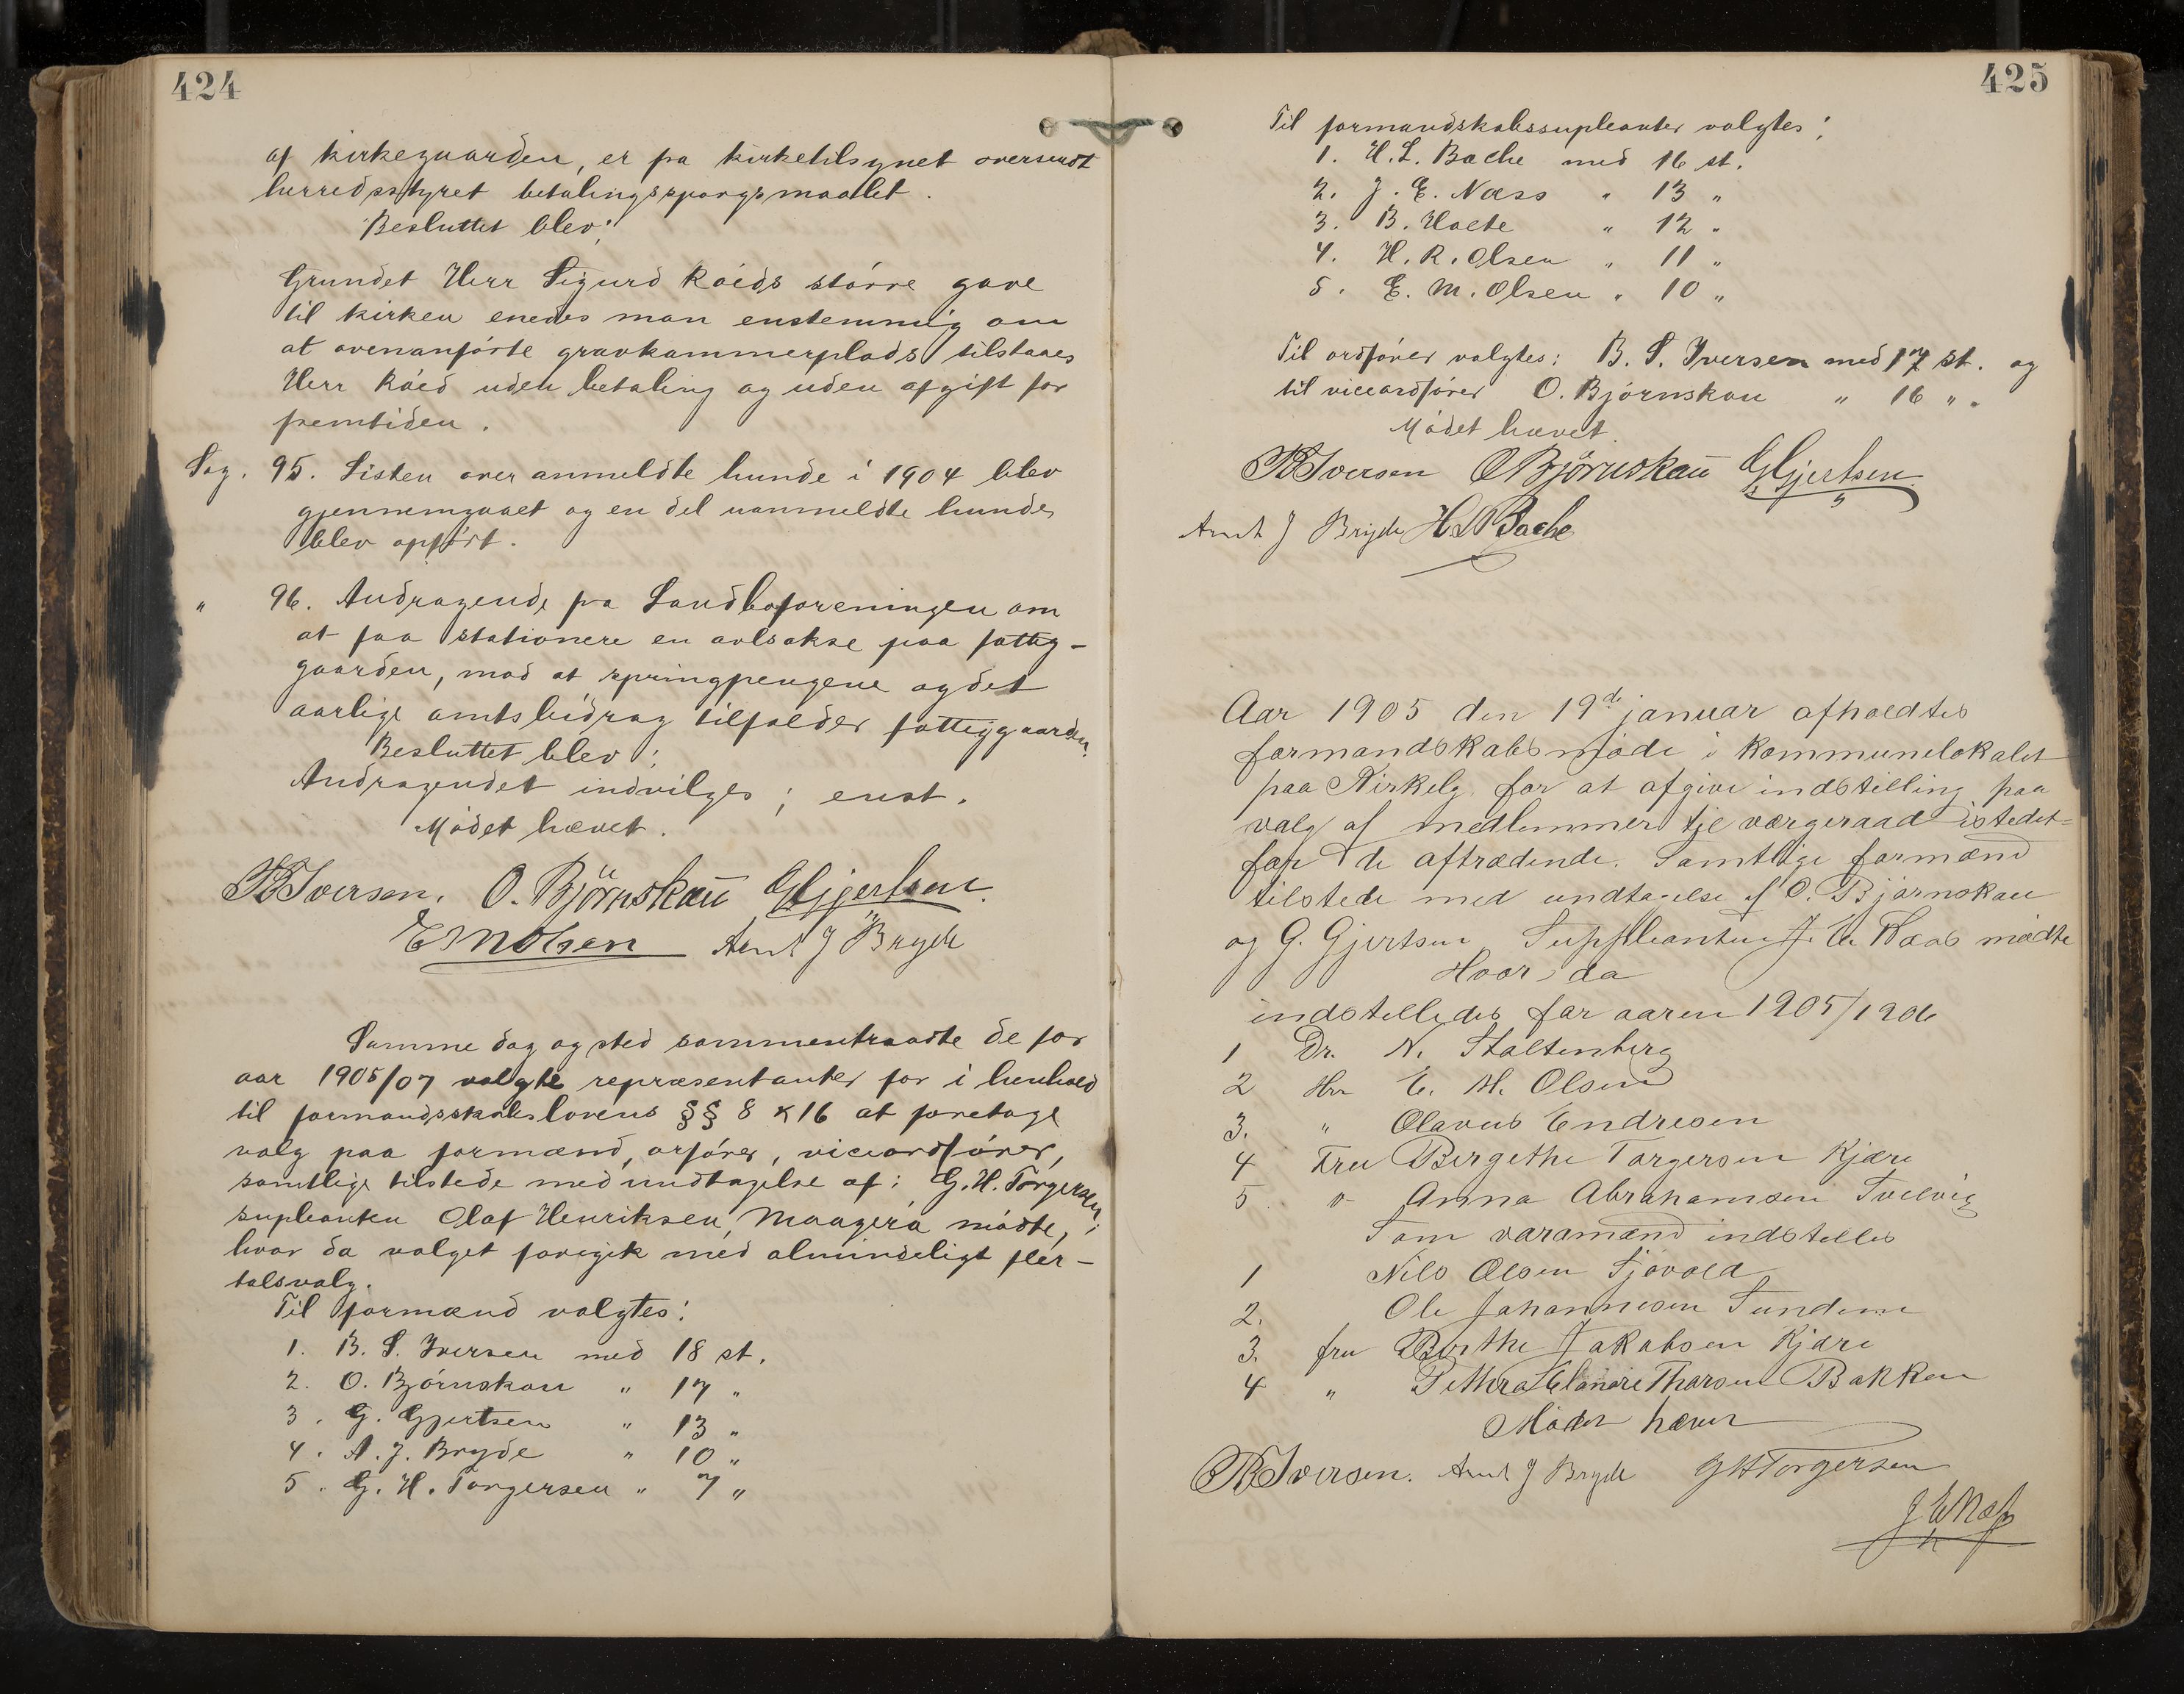 424
af kirkegaarden, er fra kirketilsynet oversendt
herredsstyret betalingsspørgsmaalet.
Besluttet blev:
Grundet Herr Sigurd Róeds större gave
til kirken enedes man enstemmig om
at ovenanförte gravkammerplads tilstaaes
Herr Róed uden betaling og uden afgift for
fremtiden.
Sag. 95. Listen over anmeldte hunde i 1904 blev
gjennemgaaet og en del uanmeldte hunde
blev opfört.
" 96. Andragende fra Landboforeningen om
at faa stationere en avlsokse paa fattig-
gaarden, mod at springpengene og det
aarlige amtsbidrag tilfalder fattiggaarden.
Besluttet blev:
Andragendet indvilges; enst.
Mödet hævet.
BSIversen. O. Björnskau GGjertsen.
EMOlsen Arnt J Bryde
Samme dag og sted sammentraadte de for
aar 1905/07 valgte repræsentanter for i henhold
til formandsskabslovens §§ 8 & 16 at foretage
valg paa formænd, orförer, viceordförer,
samtlige tilstede med undtagelse af: G. H. Torgersen;
supleanten Olaf Henriksen, Maagerö mödte,
hvor da valget foregik med almindeligt fler-
talsvalg.
Til formænd valgtes:
1. B. S. Iversen med 18 st.
2. O. Björnskau " 17 "
3. G. Gjertsen " 13 "
4. A. J. Bryde " 10 "
5. G. H. Torgersen " 7 "
425
Til formandskabssupleanter valgtes:
1. H. L. Bache med 16 st.
2. J. E. Næss " 13 "
3. B. Holte " 12 "
4. H. R. Olsen " 11 "
5. E. M. Olsen " 10 "
Til ordförer valgtes: B. S. Iversen med 17 st. og
til viceordförer O. Björnskau " 16 ".
Mödet hævet.
BSIversen OBjörnskau GGjertsen
Arnt J Bryde H L Bache
Aar 1905 den 19de januar afholdtes
formandskabsmöde i kommunelokalet
paa Kirkelg. for at afgive indstilling paa
valg af medlemmer til vergeraad istedet-
for de aftrædende. Samtlige formænd
tilstede med undtagelse af O. Björnskau
og G. Gjertsen Suppleanten J. E. Næss mødte
Hvor da
indstilledes for aaren 1905/1906
1 Dr. N. Stoltenberg
2 Hr. E. M. Olsen
3. " Olavus Endresen
4 Fru Birgethe Torgersen Kjære
5 " Anna Abrahamsen Tvelvig
Som varamænd indstilles
1 Nils Olsen Sjøvold
2. Ole Johannesen Sundene
3. fru Berthe Jakobsen Kjære
4 " Pethra Elonore Thorsen Bakken
Mödet hævet
BSIversen. Arnt J Bryde GHTorgersen
J E Næss